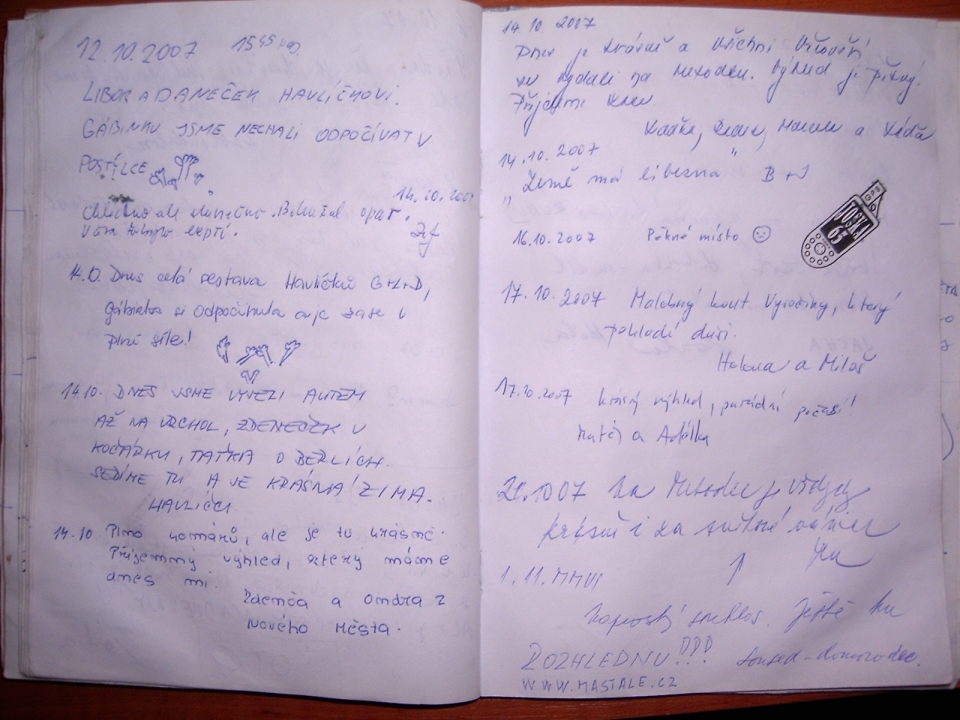 12.10.2007 15⁴⁵ hod
LIBOR A DANEČEK HAVLÍČKOVI.
GÁBINKU JSME NECHALI ODPOČÍVAT V
POSTÝLCE
14.10.2007
ale slunečno. Bohužel opar.
14.10. Dnes celá sestava Havlíčků G+L+D,
Gábinka si odpočinula a je zase v
plné síle!
14.10. DNES JSME VYVEZLI AUTEM
AŽ NA VRCHOL, ZDENEČEK V
KOČÁRKU, TAŤKA O BERLÍCH.
SEDÍME TU A JE KRÁSNÁ ZIMA.
HAVLÍČCI
14.10. Plno komárů, ale je tu krásně.
Příjemný výhled, který máme
dnes my.
Zdenča a Ondra z
Nového Města.
14.10.2007
Dnes je a všichni
se vydali na Metodku. Výhled je pěkný.
Marcela a
14.10.2007
"Země má líbezná" B+J
16.10.2007 Pěkné místo ☺
GPS
POSTO
65
17.10.2007 Malebný kout Vysočiny, který
pohladí duši.
Helena a Miloš
17.10.2007 krásný výhled, parádní počasí!
Matěj a Adélka
21.10.07 Na Metodce je vždycky
krásně i za
1.11.MMVII
Naprostý Ještě tu
ROZHLEDNU!!!
soused-domorodec.
WWW.MASTALE.CZ